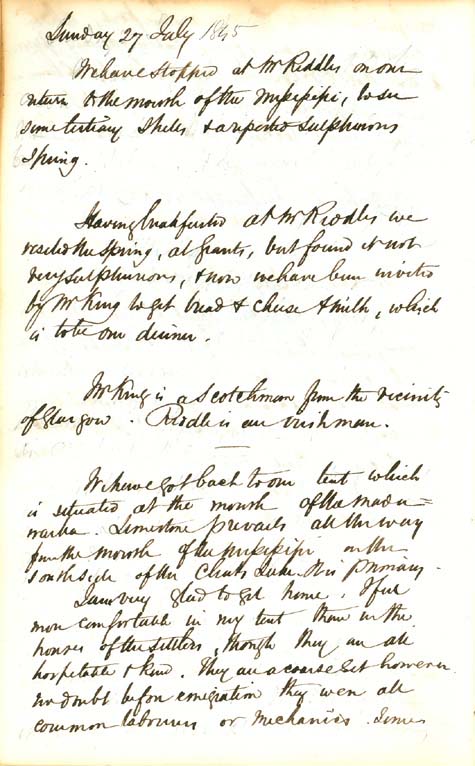 Sunday 27 July 1845
We have stopped at Mr Riddles on our
return to the mouth of the Mississippi, to see
some tertiary shells & a reported sulphurous
Spring.
Having breakfasted at Mr Riddles we
visited the spring, at Grants, but found it not
very sulphurous, & now we have been invited
by Mr King to get bread & cheese & milk, which
is to be our dinner.
Mr King is a Scotchman from the vicinity
of Glasgow. Riddle is an Irishman.
We have got back to our tent which
is situated at the mouth of the Mada=
waska. Limestone prevails all the way
from the mouth of the Mississippi on the
south side of the Chats Lake. It is primary.
I am very glad to get home. I feel
more comfortable in my tent than in the
houses of the settlers, though they are all
hospitable & kind. They are a coarse set however
no doubt before emigration they were all
common labourers or mechanics.